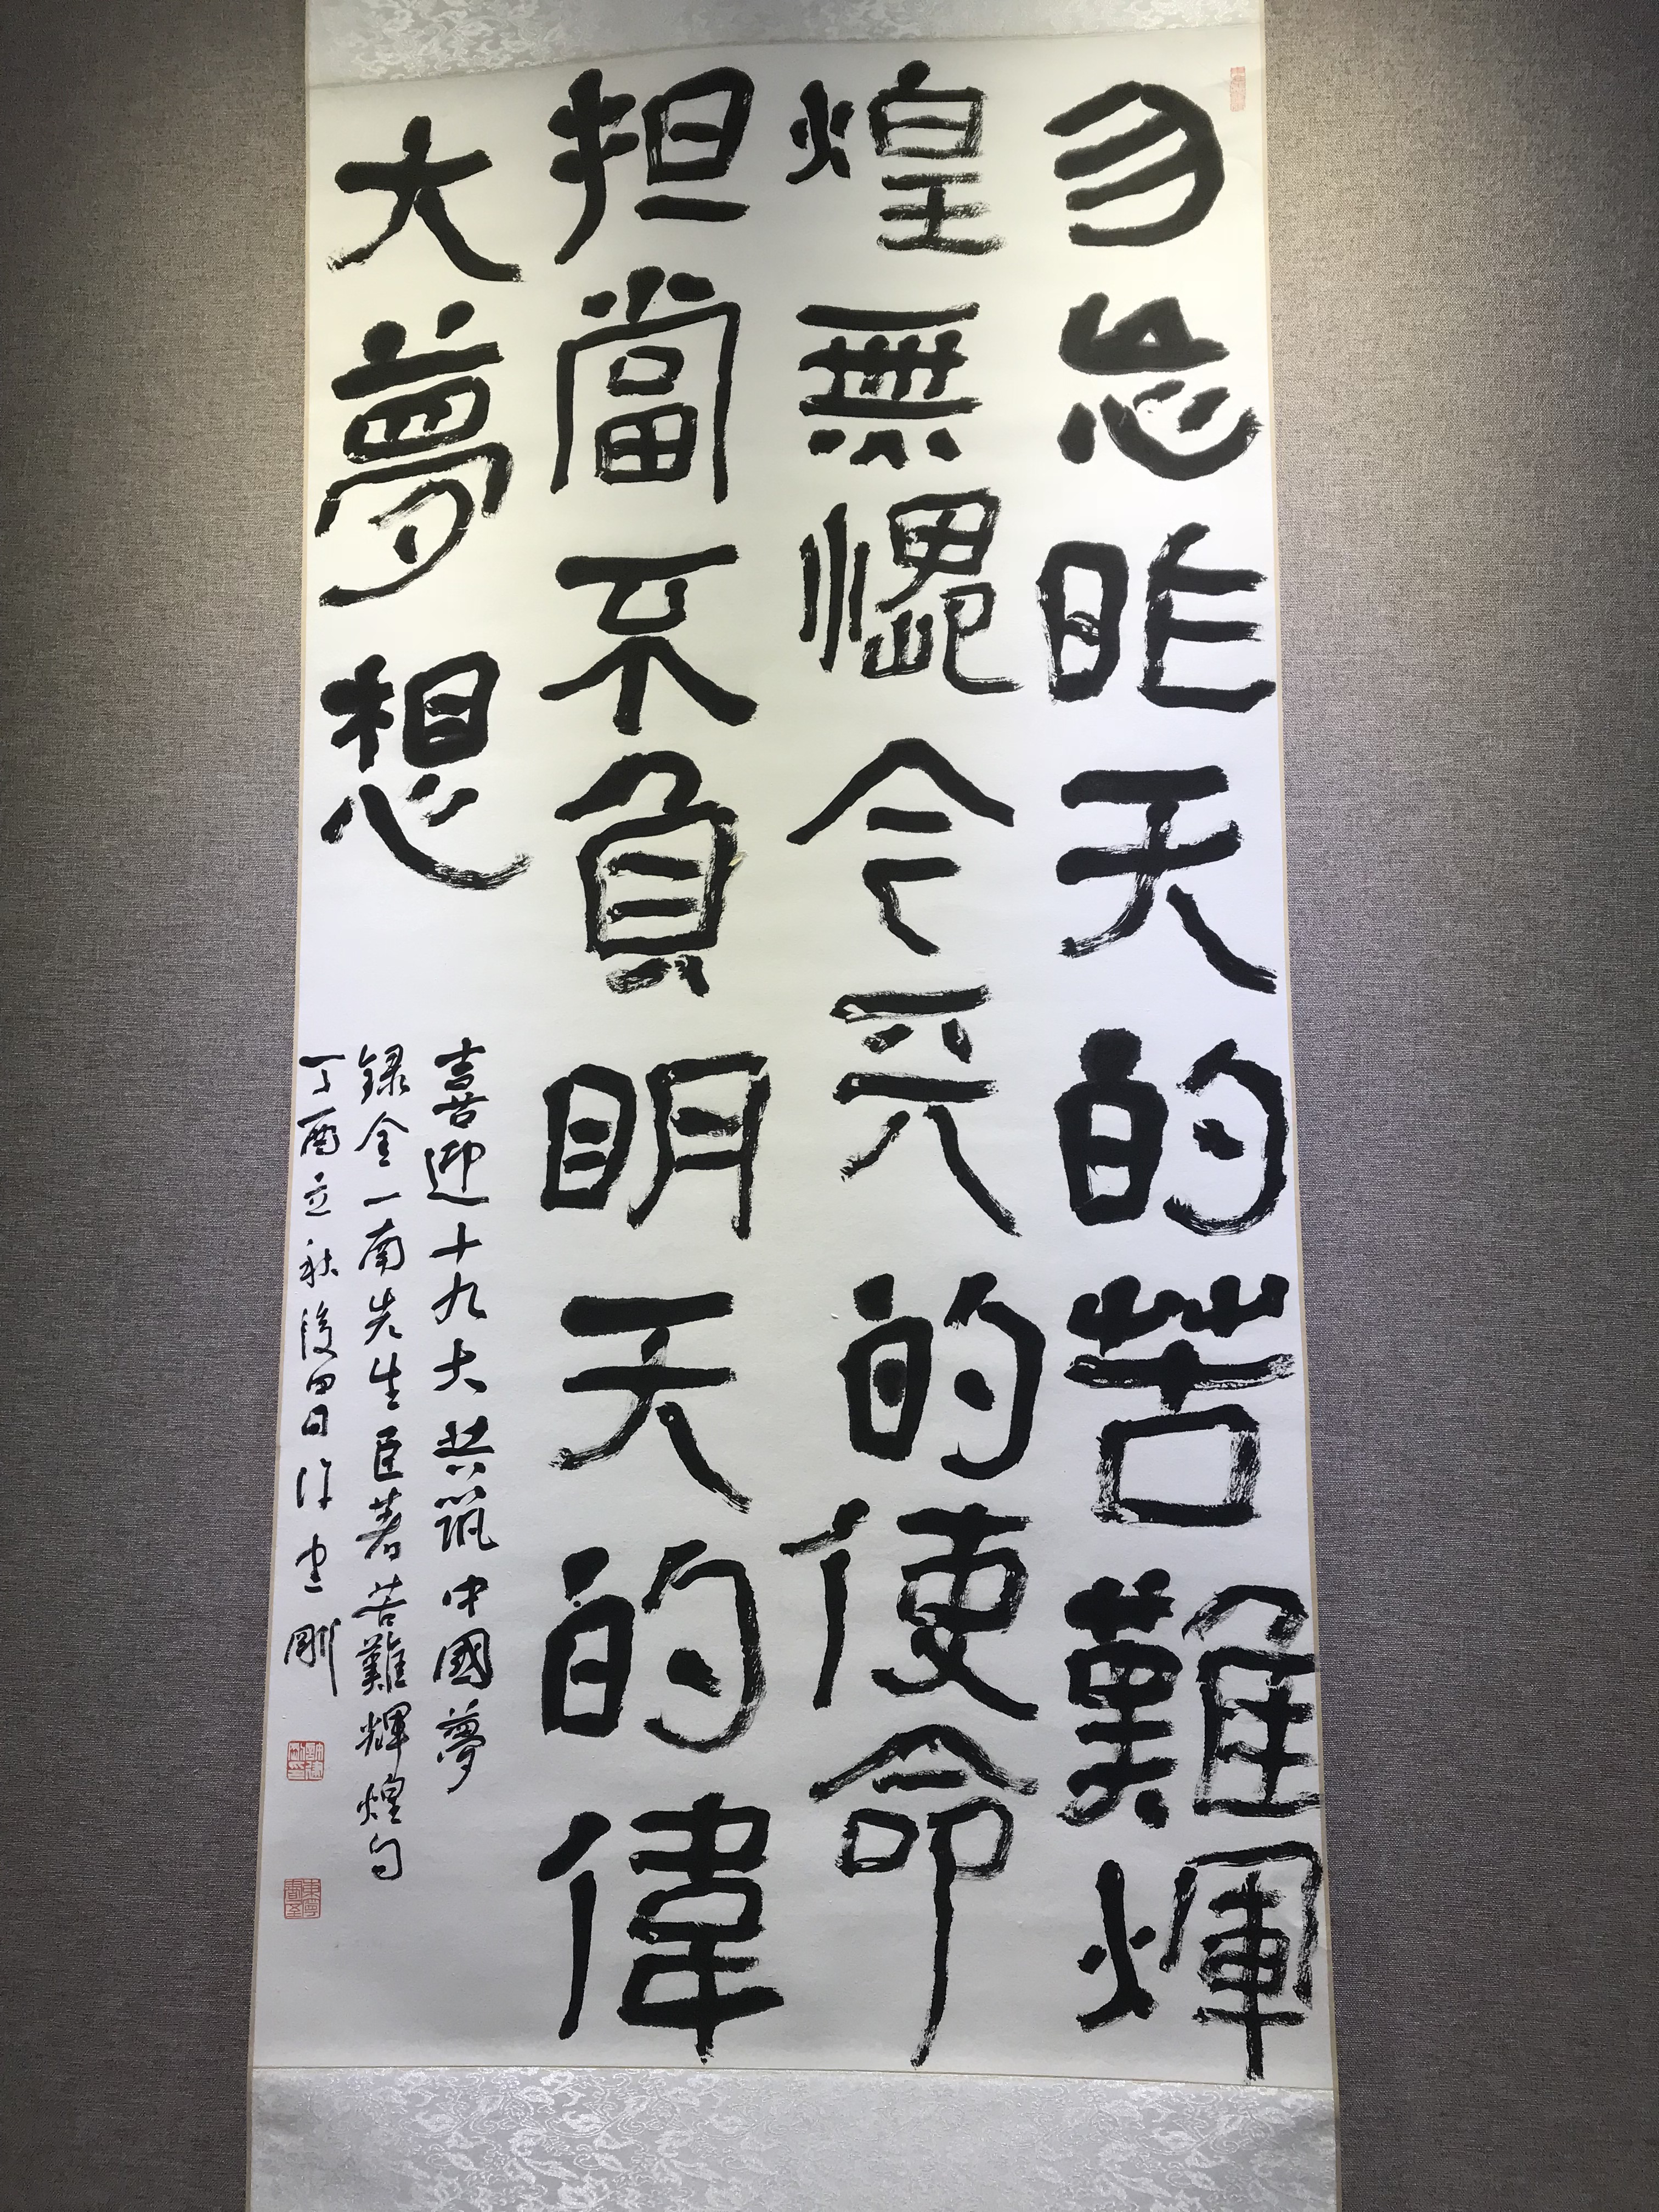 勿忘昨天的苦難輝
煌無愧今天的使命
担當不負明天的偉
大夢想
喜迎十九大共筑中國夢
録金一南先生巨著苦難輝煌句
丁酉立秋後四日許建剛